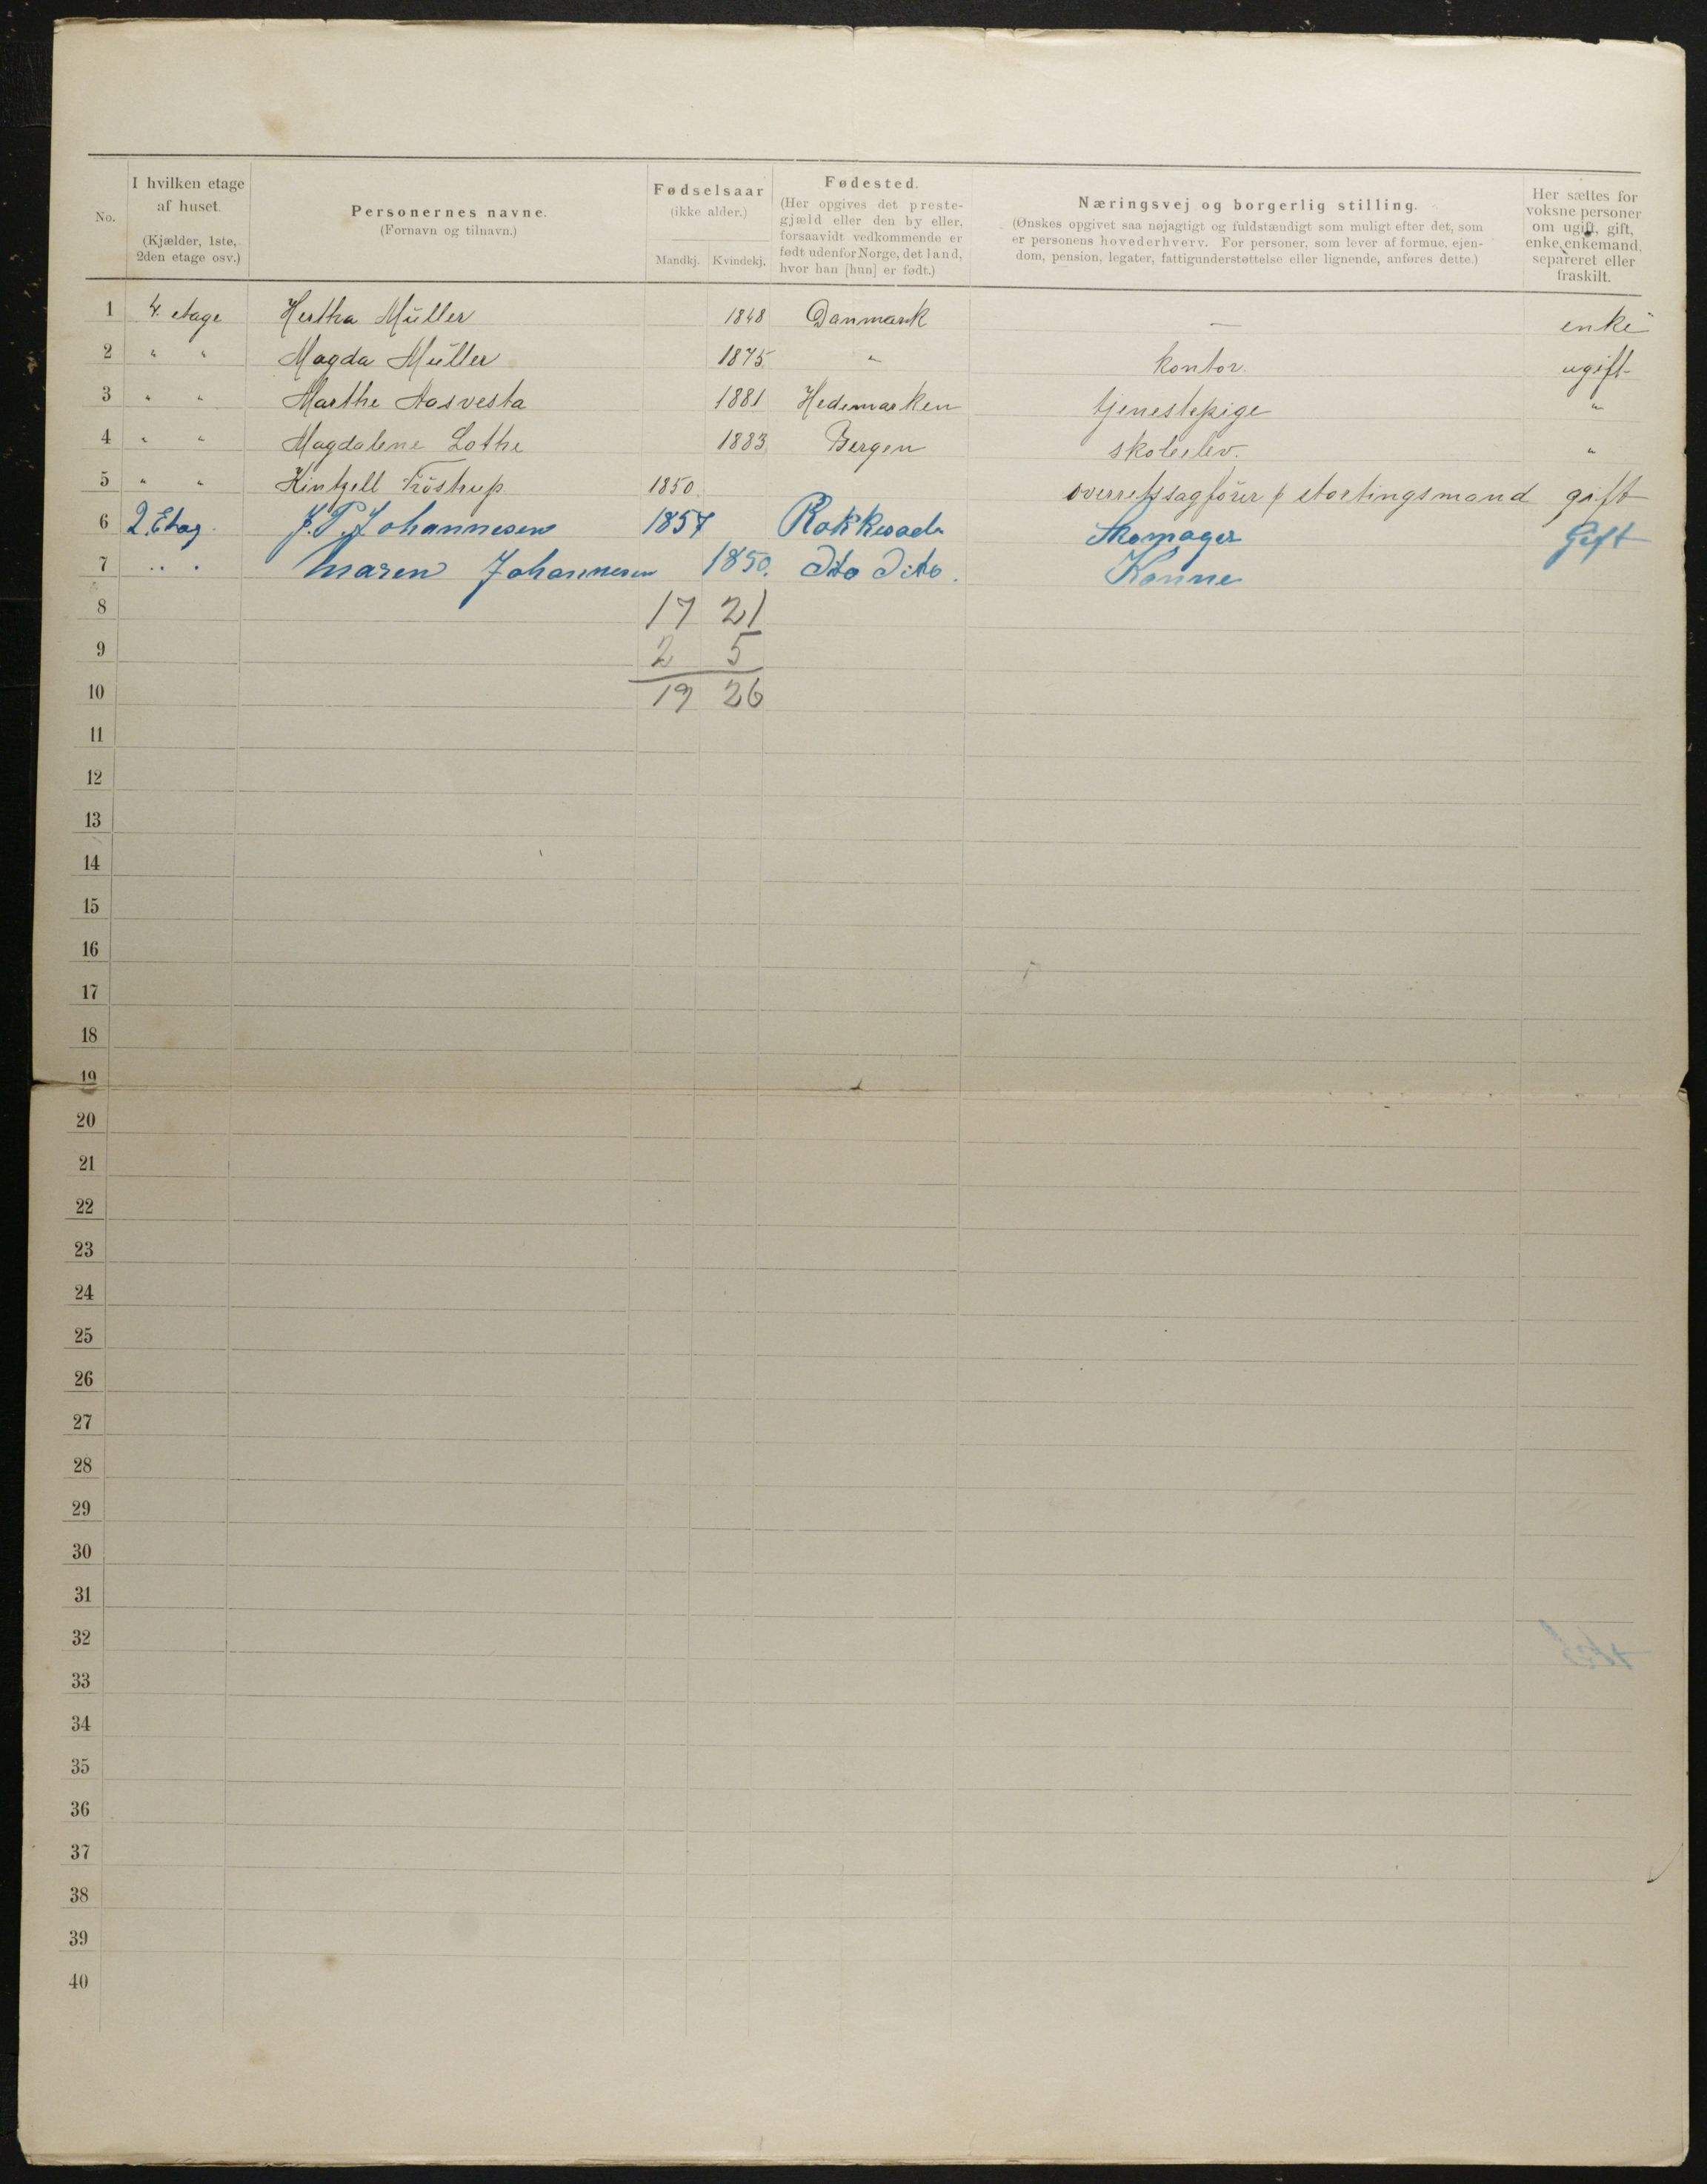 No.
I hvilken etage af huset.
(Kjælder, 1ste, 2den etage osv.)
Personernes navne.
(Fornavn og tilnavn.)
Fødselsaar
(ikke alder.)
Mandkj. Kvindekj.
Fødested.
(Her opgives det preste-
gjæld eller den by eller,
forsaavidt vedkommende er
født udenfor Norge, det land,
hvor han [hun] er født.)
Næringsvej og borgerlig stilling.
(Ønskes opgivet saa nøjagtigt og fuldstændigt som muligt efter det, som
er personens hovederhverv. For personer, som lever af formue, ejen-
dom, pension, legater, fattigunderstøttelse eller lignende, anføres dette.)
Her sættes for
voksne personer
om ugift, gift,
enke, enkemand,
separeret eller
fraskilt.
1 4. etage Hertha Müller 1848 Danmark — enke
2 " " Magda Müller 1875 " kontor. ugift
3 " " Marthe Aasvesta 1881 Hedemarken tjenestepige "
4 " " Magdalene Lothe 1883 Bergen skoleelev. "
5 " " Tröstrup 1850 overretssagfører stortingsmand gift
6 2. Etag. J. P. Johannesen 1857 Skomager Gift
7 " " Maren Johannesen 1850. Dito Dito. Konne
8 17 21
9 2 5
10 19 26
11
12
13
14
15
16
17
18
19
20
21
22
23
24
25
26
27
28
29
30
31
32
33
34
35
36
37
38
39
40